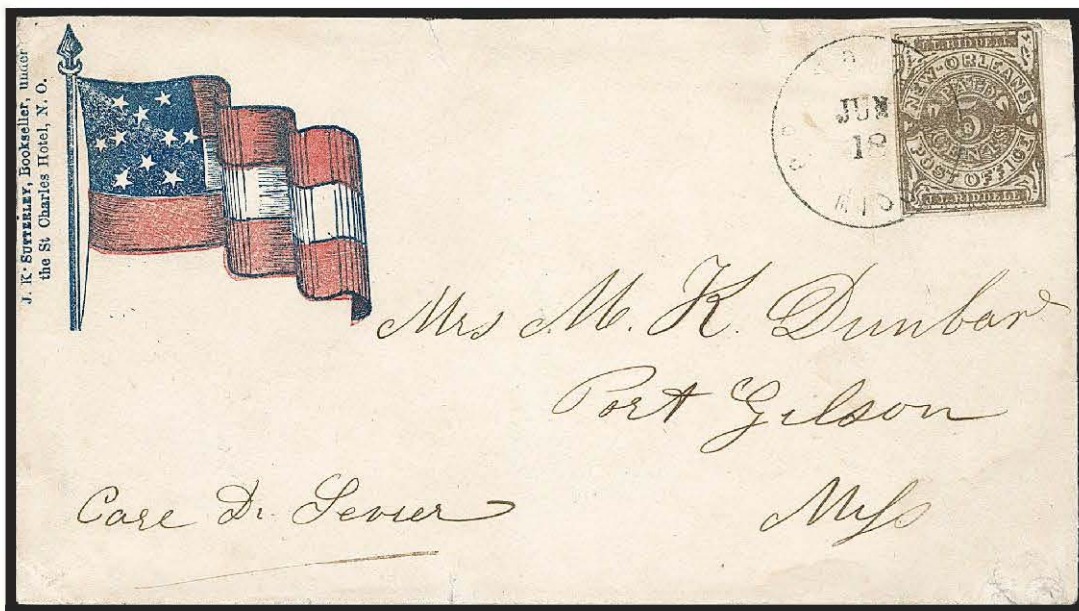 J. K. SUTTERLEY, Bookseller, under
the St Charles Hotel, N. O.
JUN
18
J.L.RIDDELL
NEW-ORLEANS
PAID
5
CENTS
POST OFFICE
J.L.RIDDELL
Mrs M. K. Dunbar
Port Gilson
Miss
Care Dr Sevier